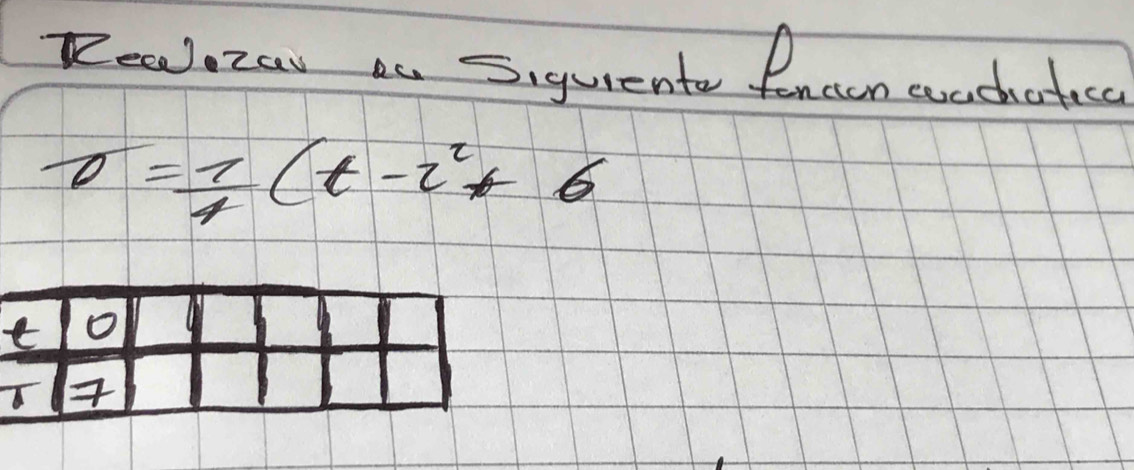 Realizar la Siguiente función cuadratica
T = 1/4 (t - 2² + 6
t 0
T 7